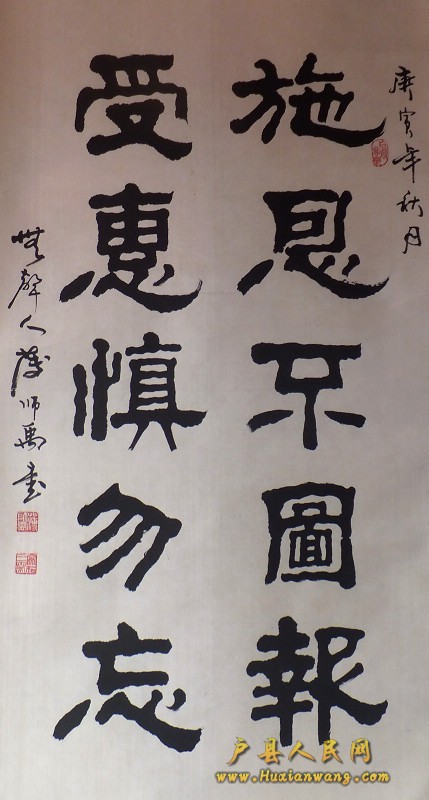 庚寅年秋月
施恩不圖報
受惠慎勿忘
無聲人 師禹書
户县人民网
www.Huxianwang.com